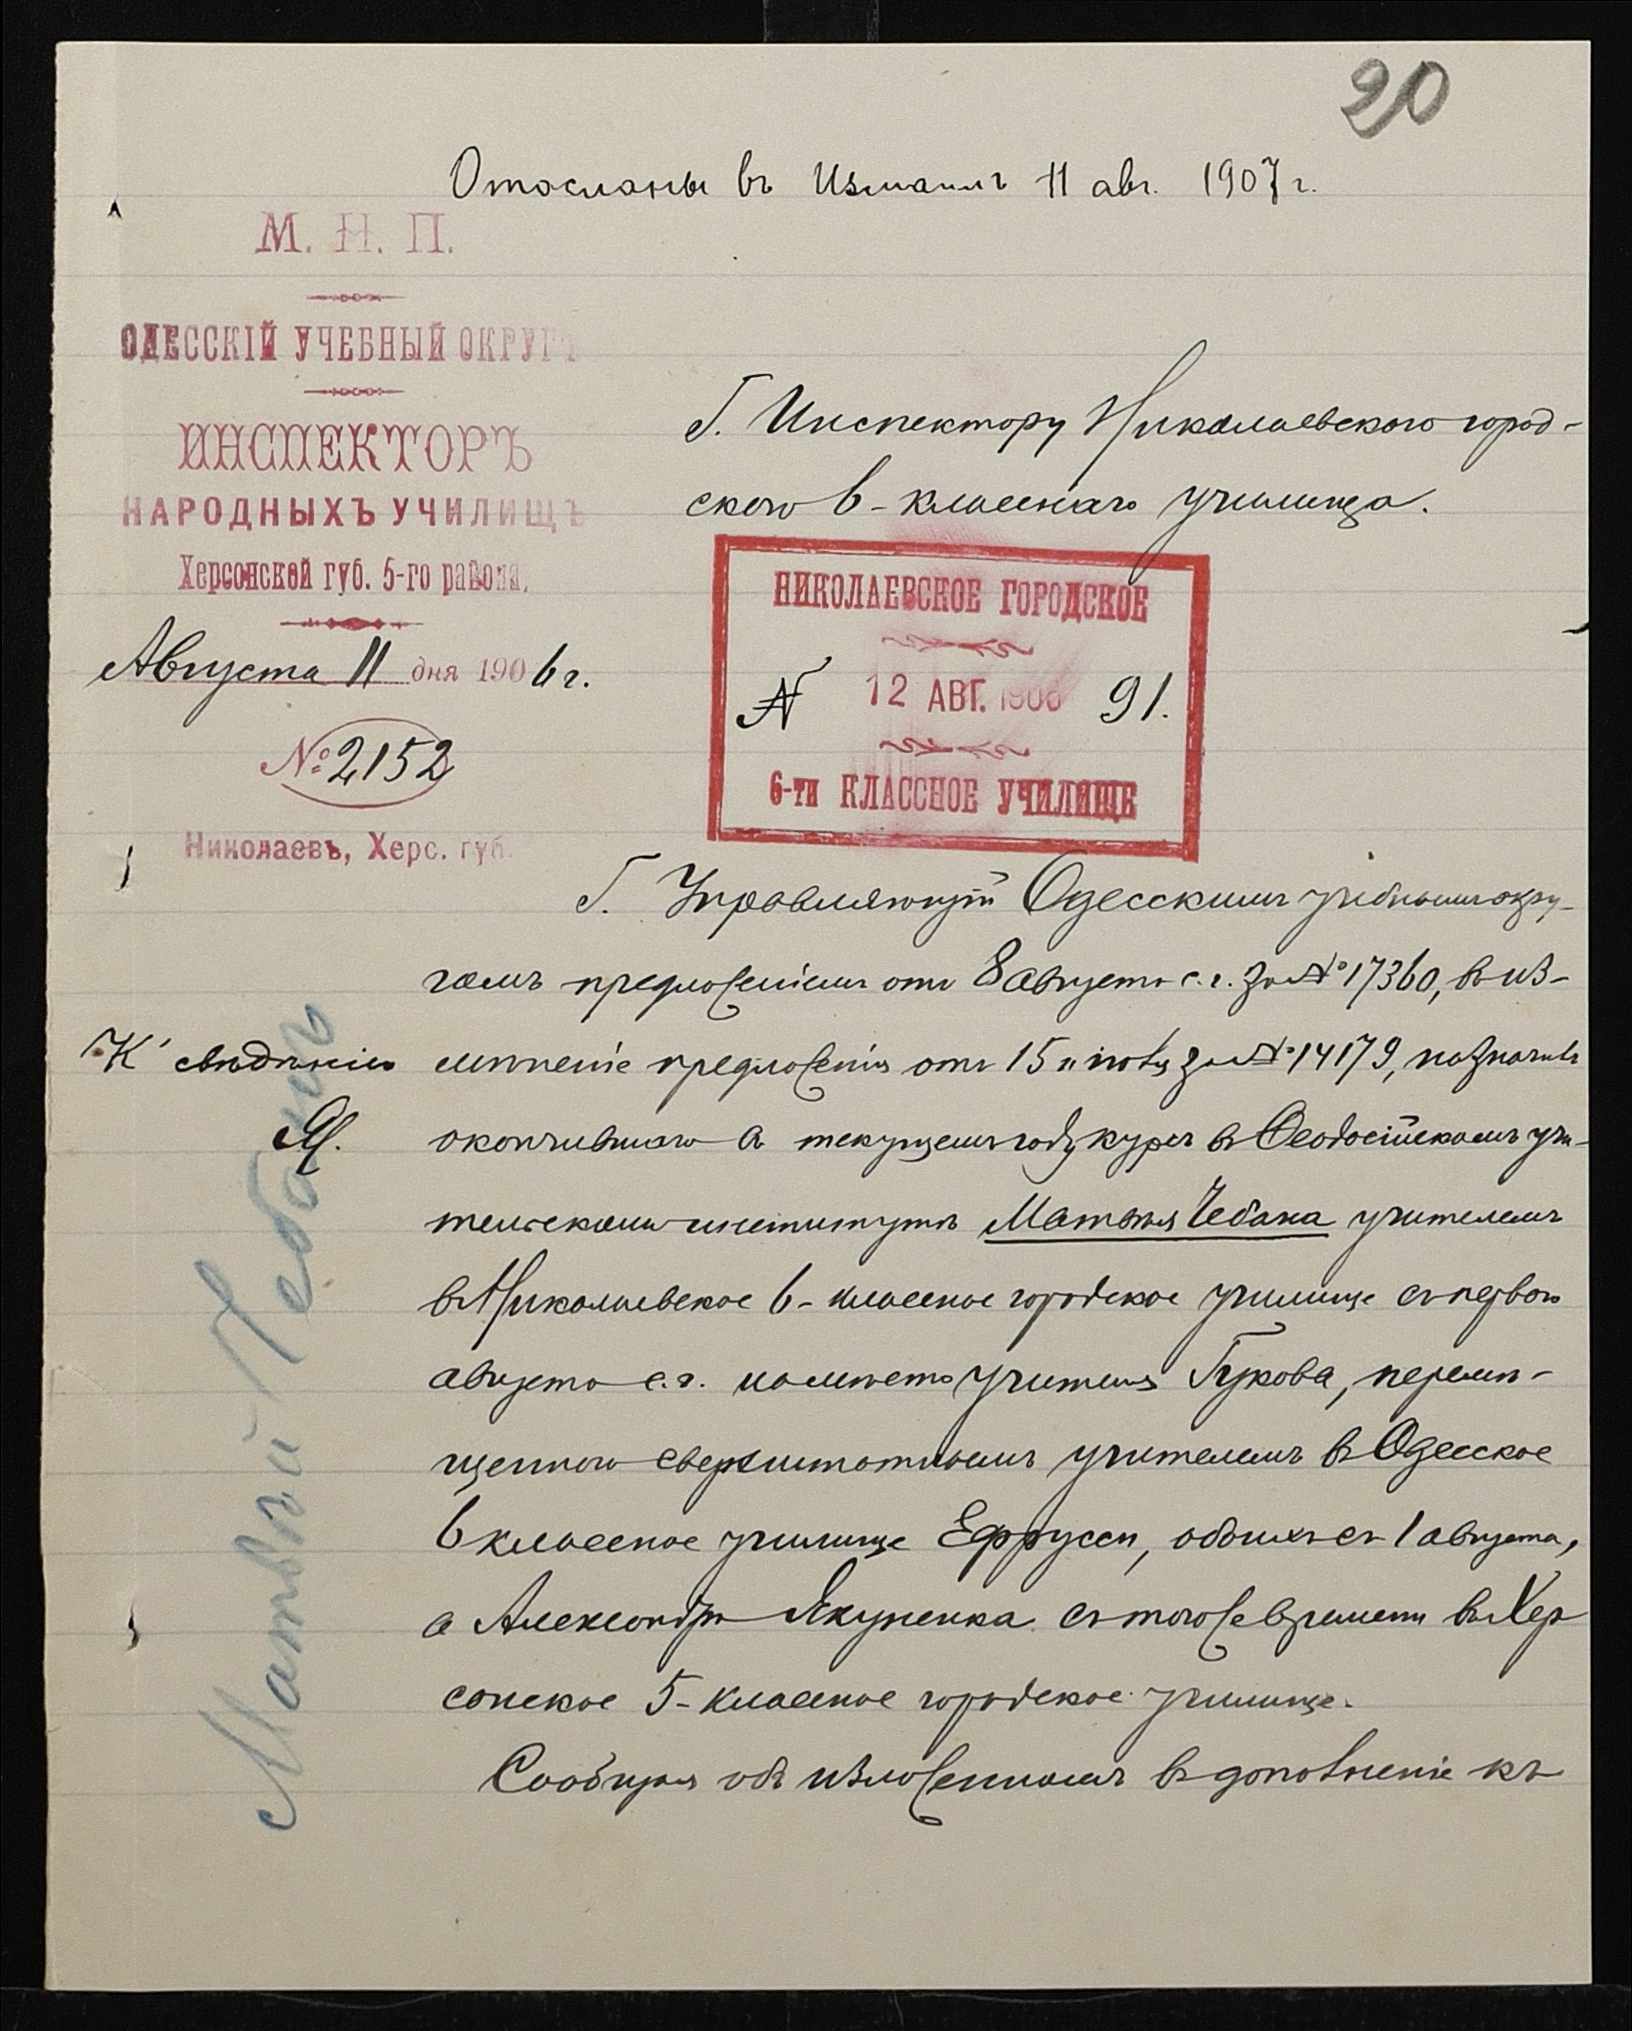 20
Отосланы въ Измаилъ 11 авг. 1907 г.
М. Н. П.
ОДЕССКІЙ УЧЕБНЫЙ ОКРУГЪ
ИНСПЕКТОРЪ
НАРОДНЫХЪ УЧИЛИЩЪ
Херсонской губ. 5-го района.
Августа 11 дня 1906 г.
№ 2152
Николаевъ, Херс. губ.
Г. Инспектору Николаевского город-
ского 6-класснаго училища.
НИКОЛАЕВСКОЕ ГОРОДСКОЕ
№ 12 АВГ. 1906 91.
6-ти КЛАССНОЕ УЧИЛИЩЕ
Г. Управляющій Одесскимъ учебнымъ окру-
гомъ предложеніемъ отъ 8 августа с. г. за № 17360, въ из-
мѣненіе предложенія отъ 15 іюля за № 14179, назначивъ
окончившаго въ текущемъ году курсъ въ Ѳеодосійскомъ учи-
тельскомъ институтѣ Матвѣя Чебана учителемъ
въ Николаевское 6-классное городское училище съ перваго
августа с. г. на мѣсто учителя Гукова, перемѣ-
щеннаго сверхштатнымъ учителемъ въ Одесское
6 классное училище Ефрусси, обоихъ съ 1 августа,
а Александра Якуненка съ того же времени въ Хер
сонское 5-классное городское училище.
Сообщая объ изложенномъ въ дополненіе къ
К свѣдѣнію
Матвѣй Чебанъ